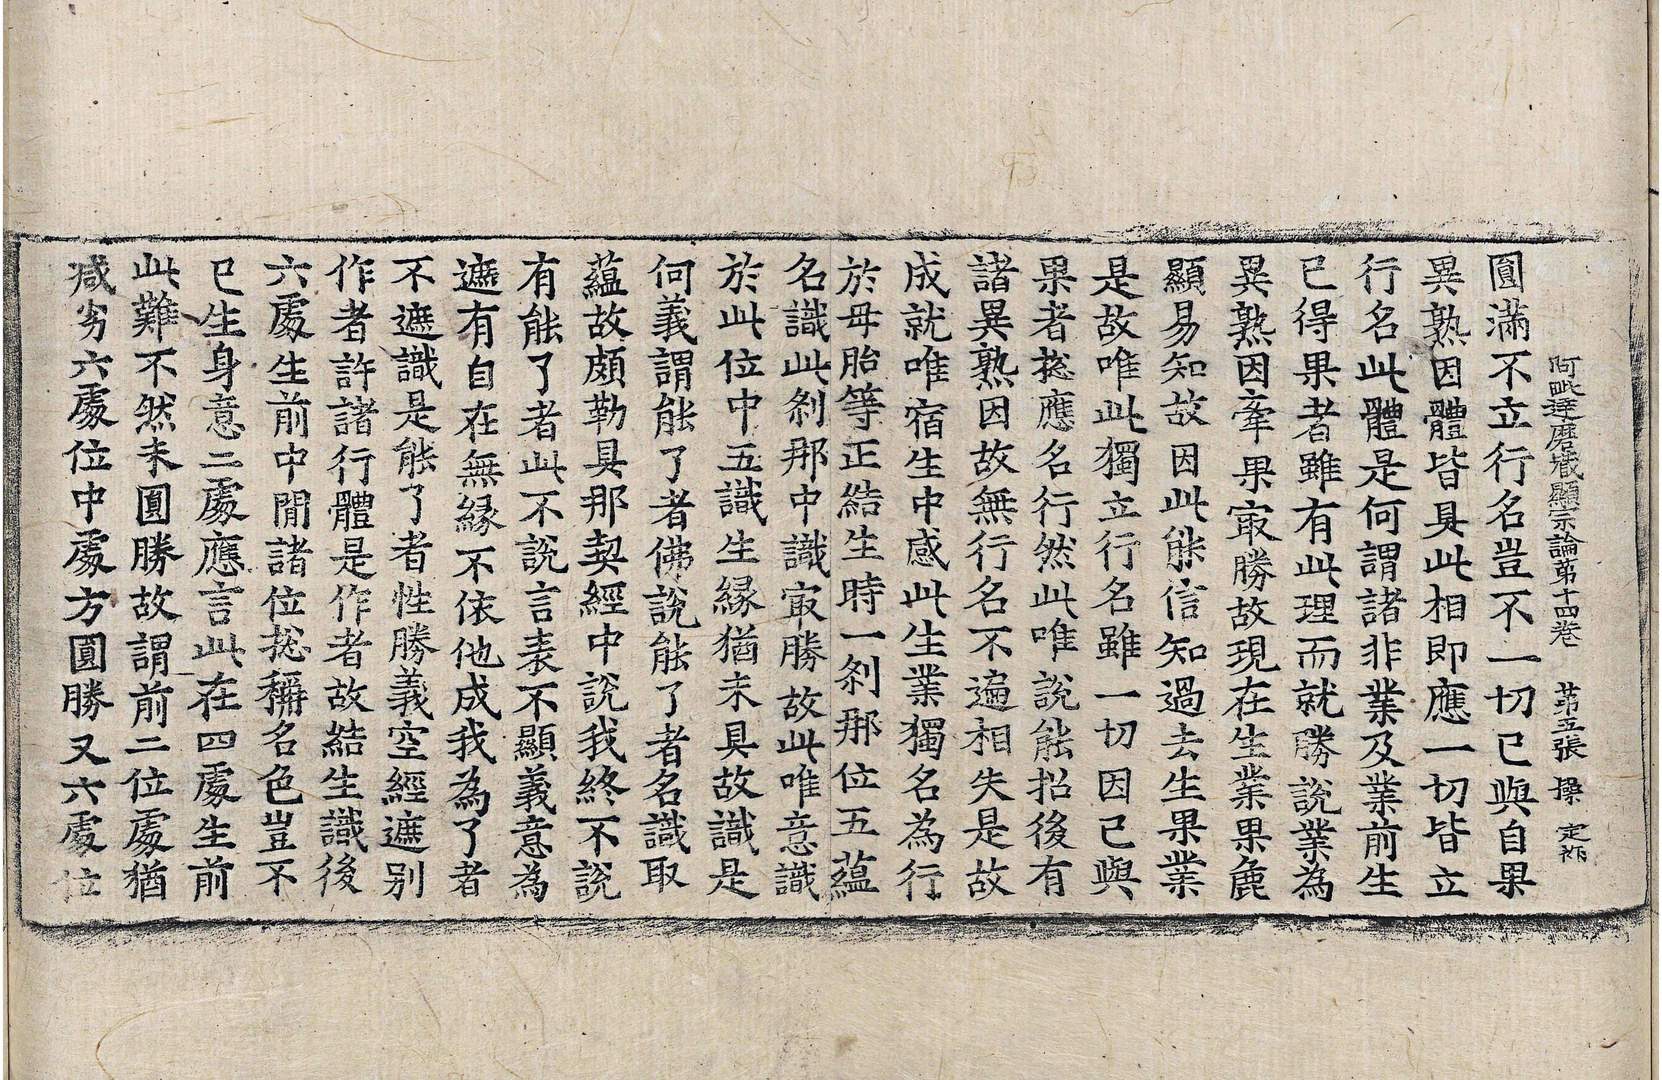 阿毗達磨藏顯宗論第十四卷 第五張 操 定祚
圓滿不立行名豈不一切已與自果
異熟因體皆具此相即應一切皆立
行名此體是何謂諸非業及業前生
已得果者雖有此理而就勝說業為
異熟因牽果㝡勝故現在生業果麁
顯易知故因此能信知過去生果業
是故唯此獨立行名雖一切因已與
果者揔應名行然此唯說能招後有
諸異熟因故無行名不遍相失是故
成就唯宿生中感此生業獨名為行
於母胎等正結生時一剎那位五蘊
名識此剎那中識㝡勝故此唯意識
於此位中五識生緣猶未具故識是
何義謂能了者佛說能了者名識取
蘊故頗勒具那契經中說我終不說
有能了者此不說言表不顯義意為
遮有自在無緣不依他成我為了者
不遮識是能了者性勝義空經遮別
作者許諸行體是作者故結生識後
六處生前中閒諸位揔稱名色豈不
已生身意二處應言此在四處生前
此難不然未圓勝故謂前二位處猶
減劣六處位中處方圓勝又六處位